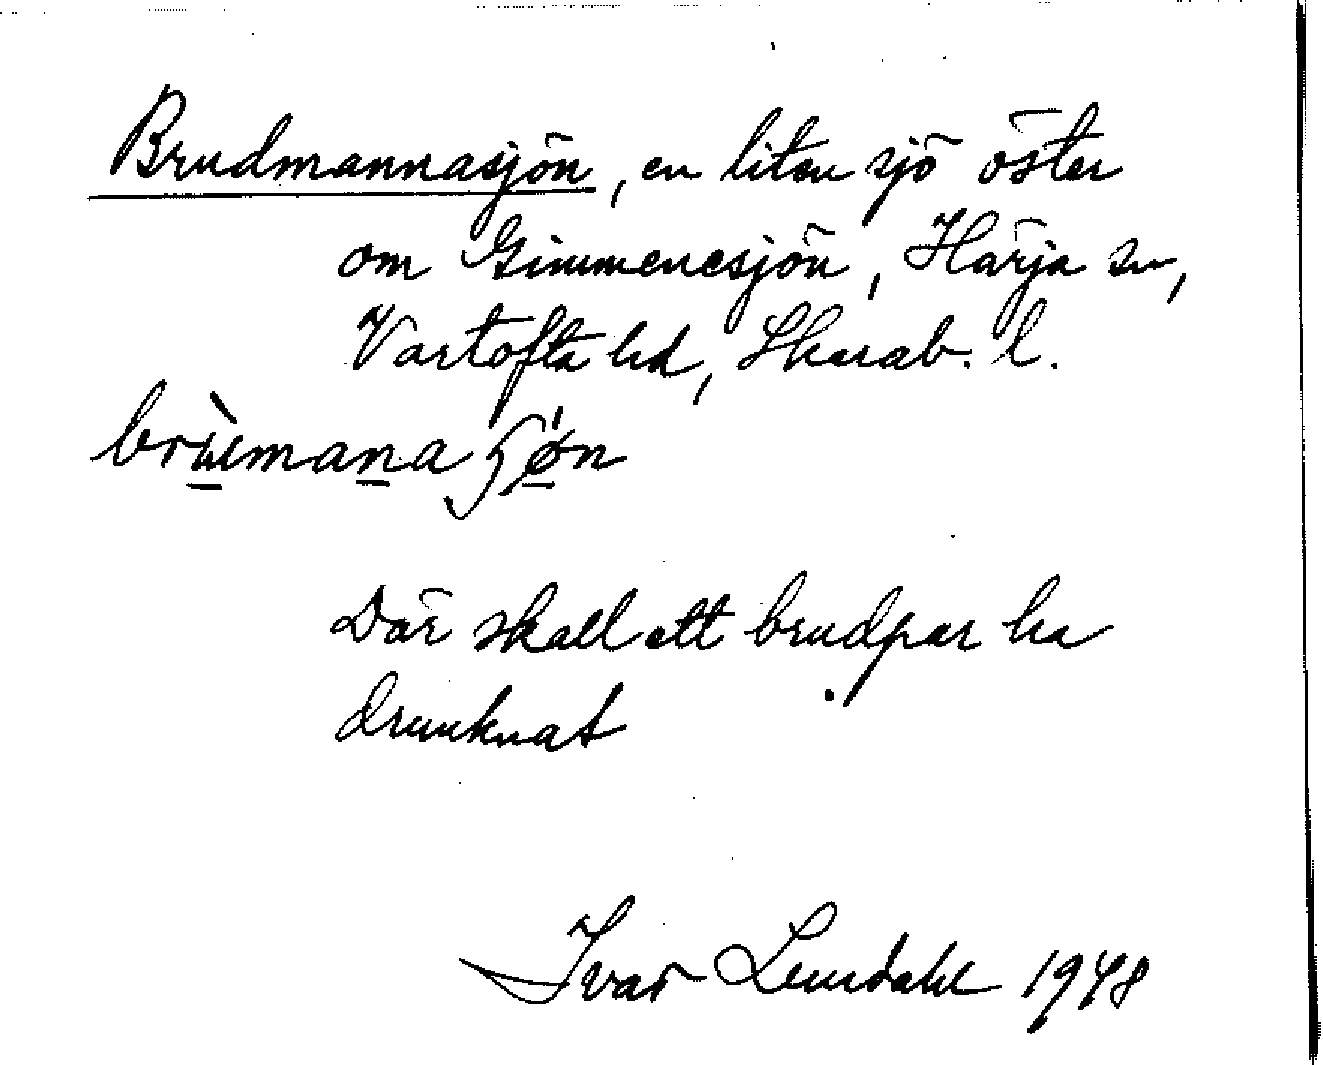 Brudmannasjön, en liten sjö öster
om Gimmenesjön, Härja sn,
Vartofta hd, Skarab. l.
brùmana ʃǿn
Där skall ett brudpar ha
drunknat
Ivar Lundahl 1948